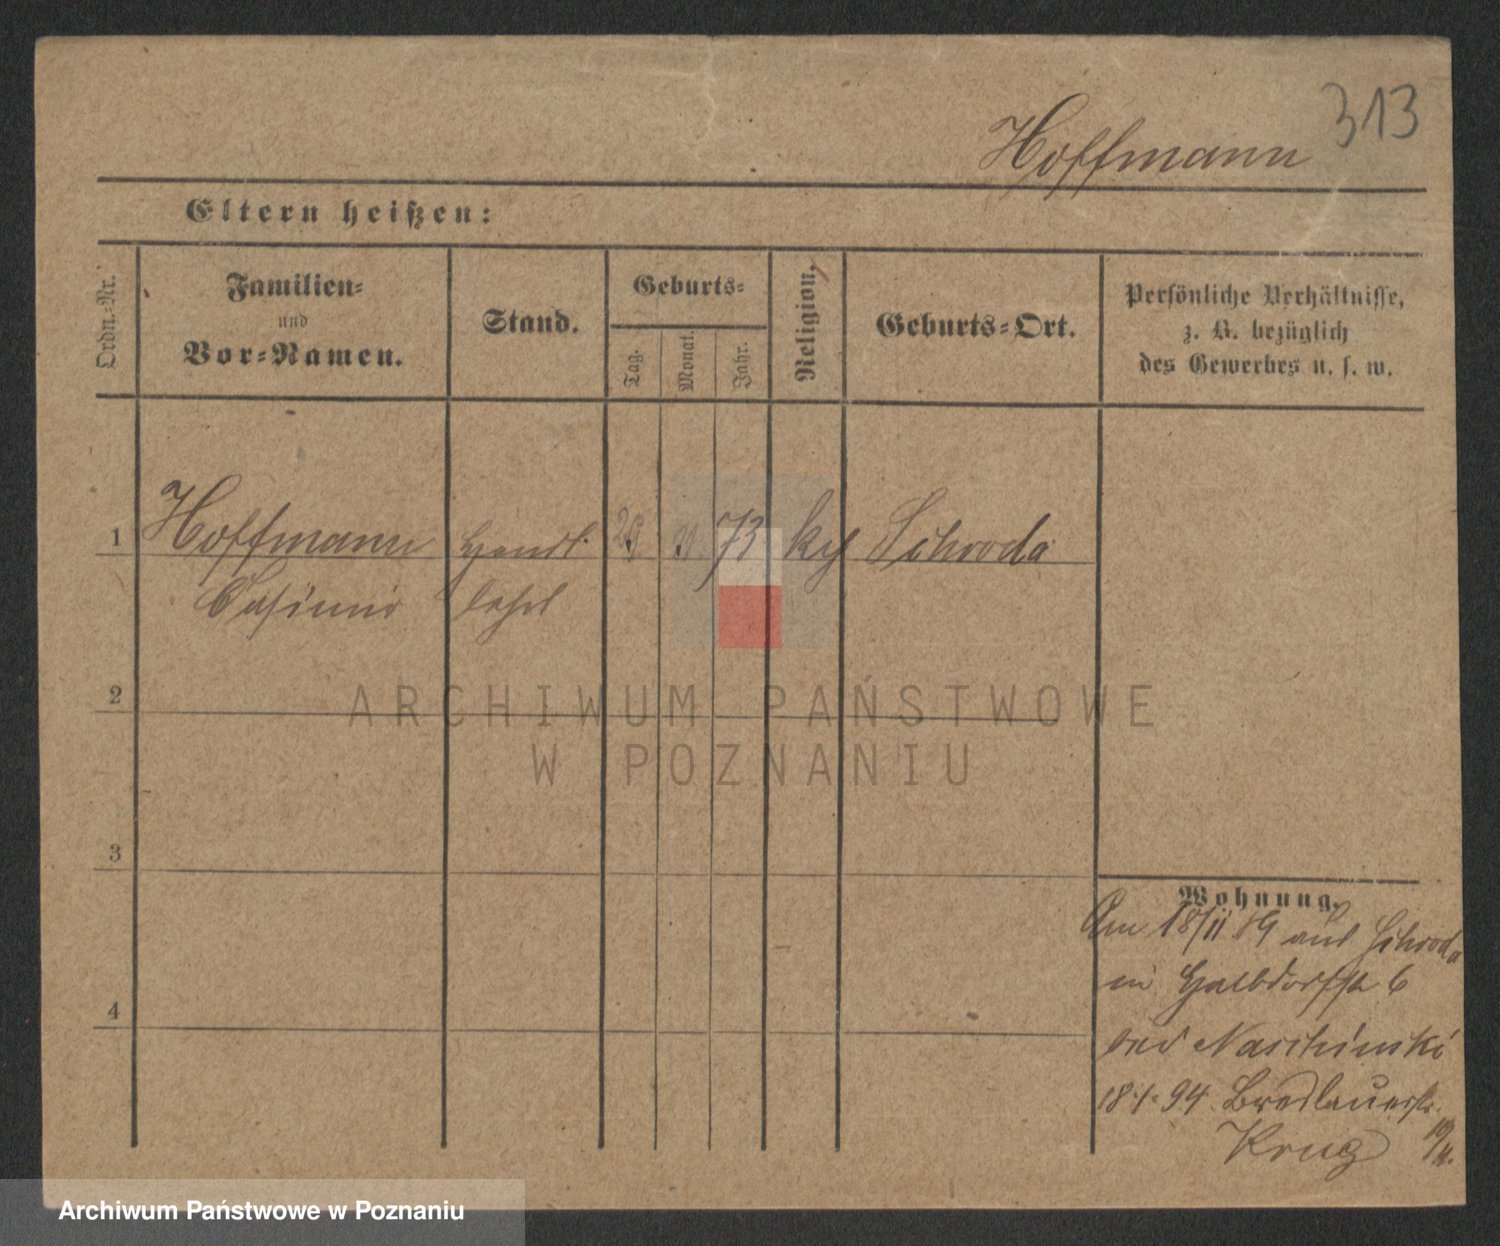 313
Hoffmann
Eltern heißen:
Ordn.-Nr.
Familien-
und
Vor-Namen.
Stand.
Geburts-
Tag.
Monat.
Jahr.
Religion.
Geburts-Ort.
Persönliche Verhältnisse,
z. B. bezüglich
des Gewerbes u. s. w.
1 Hoffmann Handl. 73 Schroda
Casimir lehrl
2
3
4
Wohnung.
Am 18/11 89 aus Schroda
in Halbdorfstr 6
bei
18 1. 94 Breslauerstr.
Krug
ARCHIWUM PAŃSTWOWE
W POZNANIU
Archiwum Państwowe w Poznaniu